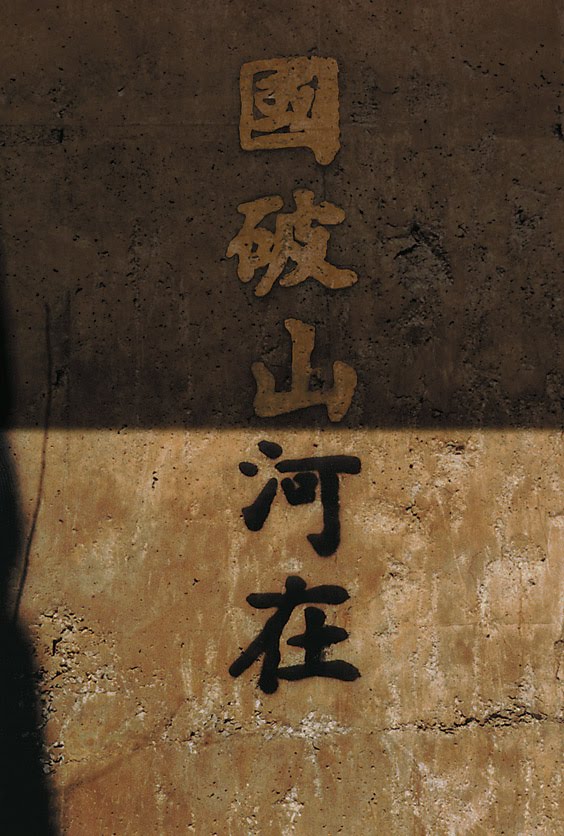 國破山河在